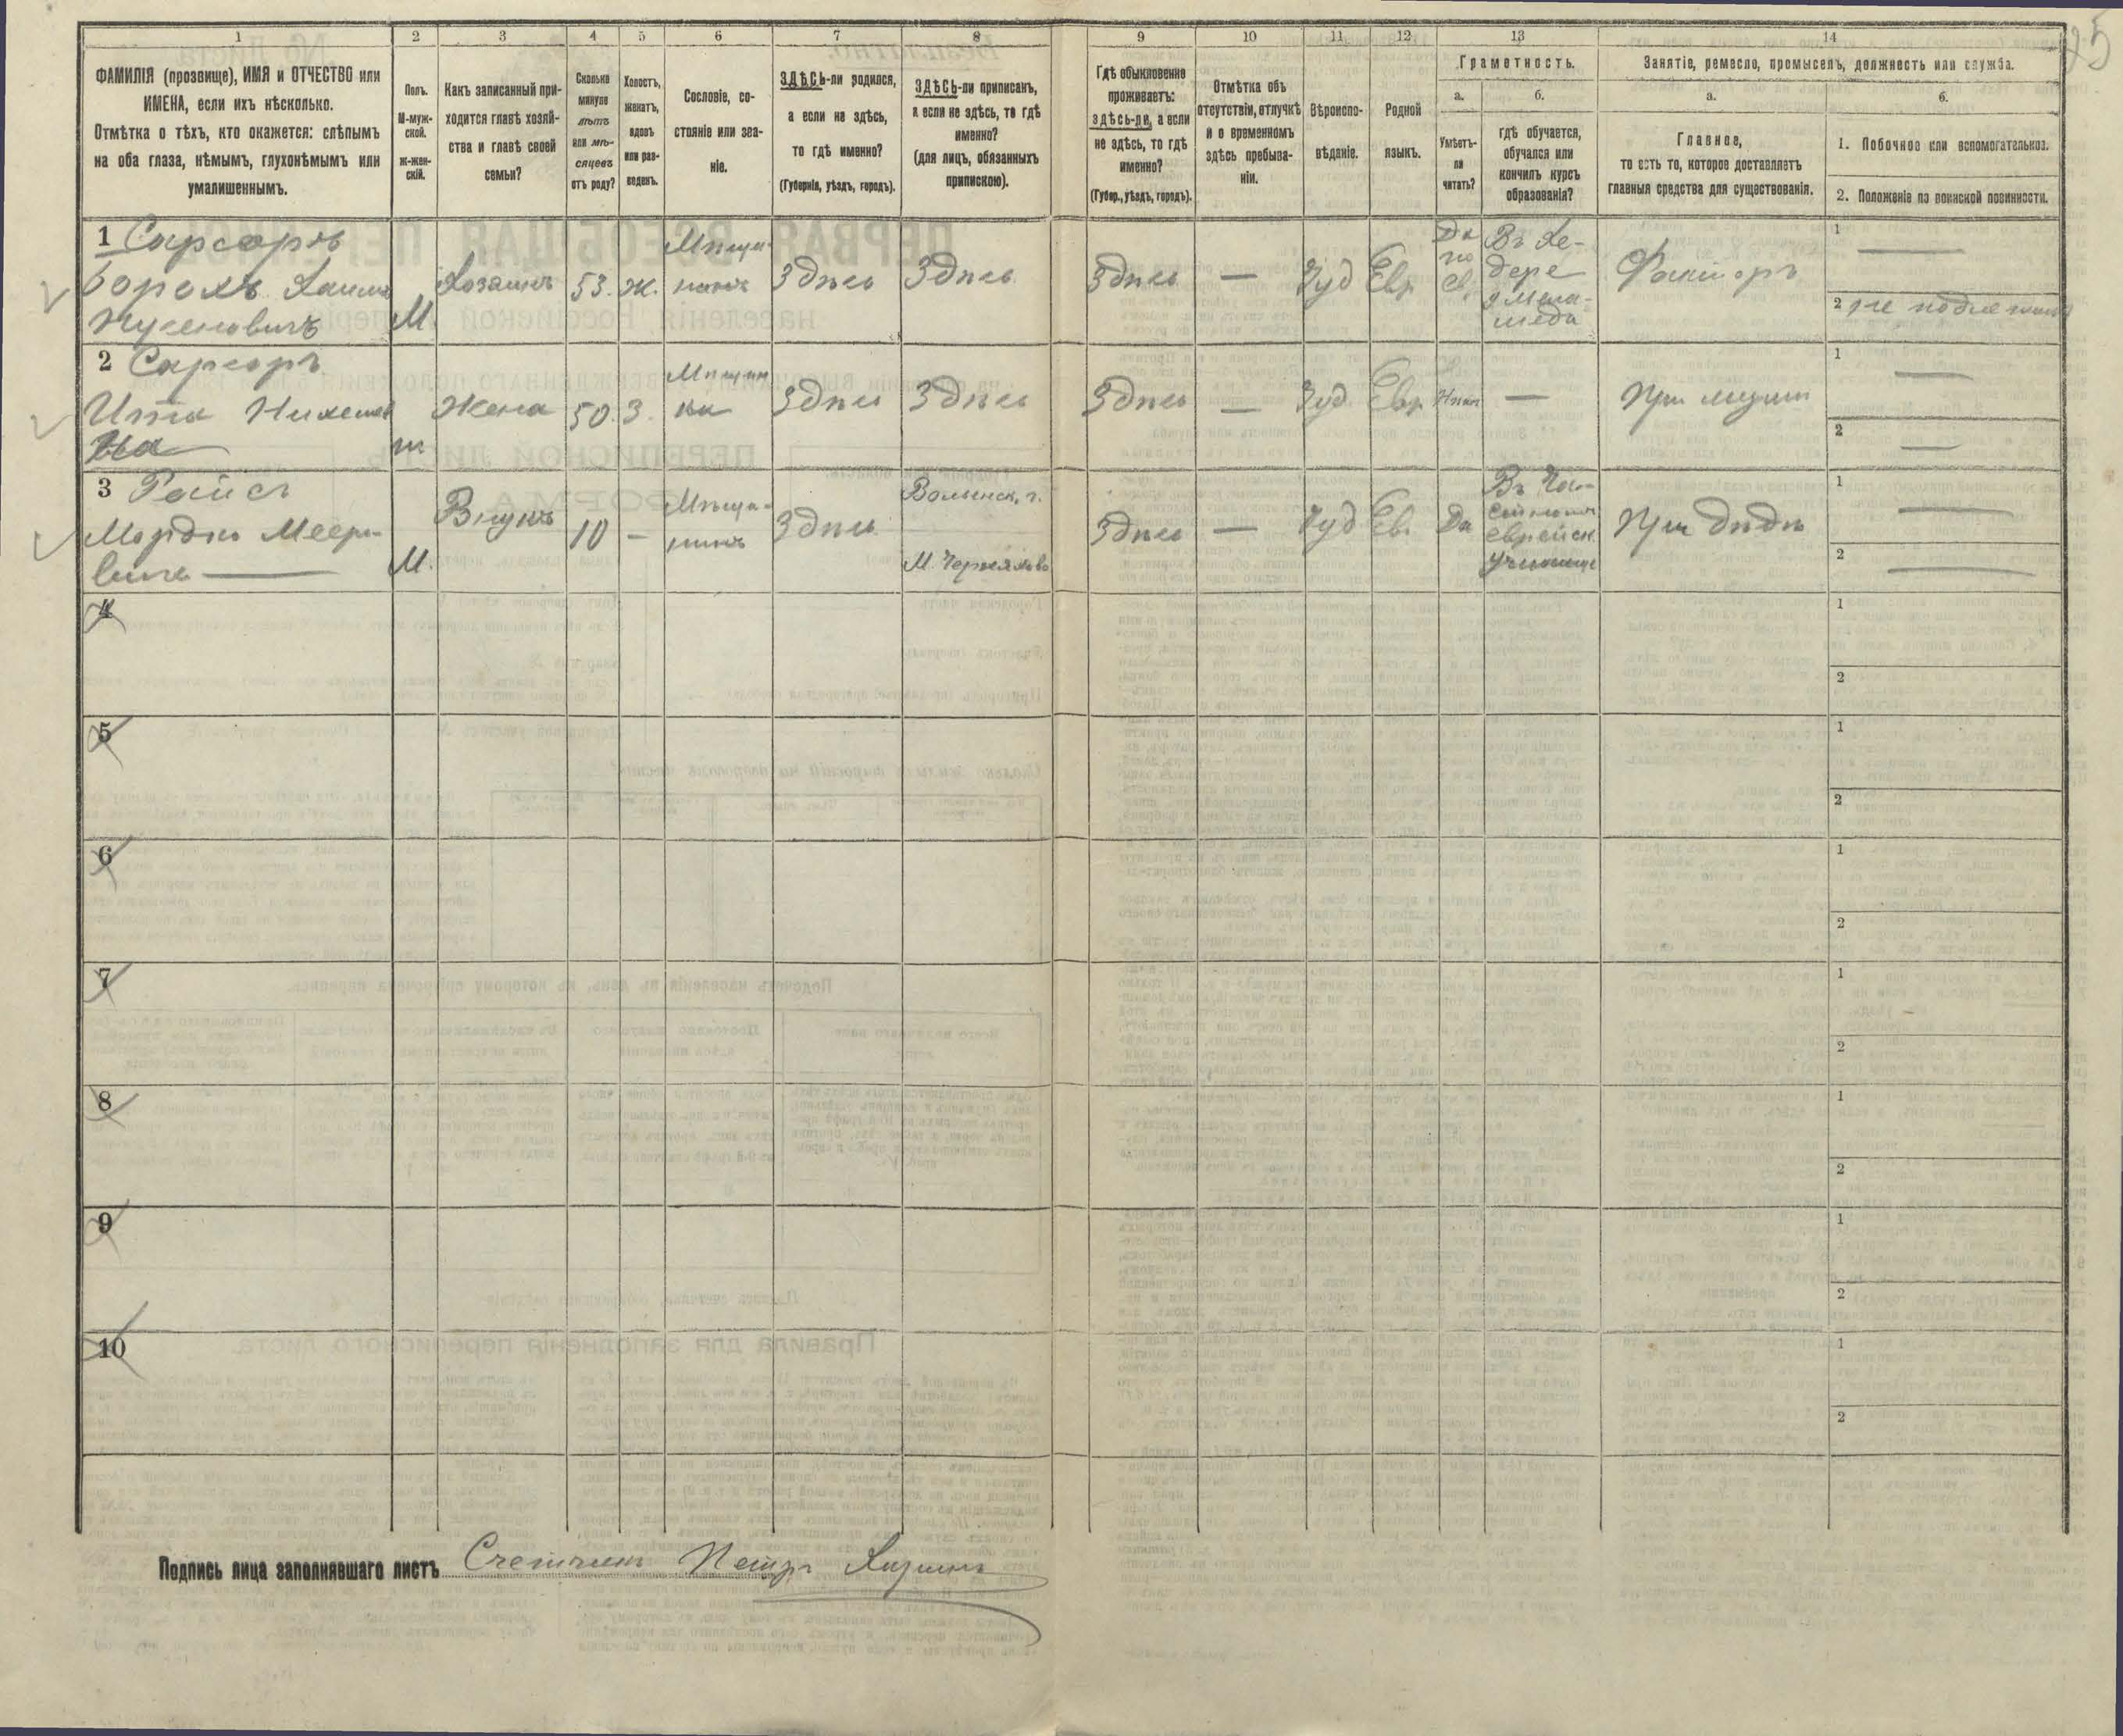 25
1 2 3 4 5 6 7 8 9 10 11 12 13 14
ФАМИЛІЯ (прозвище), ИМЯ и ОТЧЕСТВО или
ИМЕНА, если ихъ нѣсколько.
Отмѣтка о тѣхъ, кто окажется: слѣпымъ
на оба глаза, нѣмымъ, глухонѣмымъ или
умалишеннымъ.
Полъ.
М-муж-
ской.
Ж-жен-
скій.
Какъ записанный при-
ходится главѣ хозяй-
ства и главѣ своей
семьи?
Сколько
минуло
лѣтъ
или мѣ-
сяцевъ
отъ роду?
Холостъ,
женатъ,
вдовъ
или раз-
веденъ.
Сословіе, со-
стояніе или зва-
ніе.
ЗДѢСЬ-ли родился,
а если не здѣсь,
то гдѣ именно?
(Губернія, уѣздъ, городъ).
ЗДѢСЬ-ли приписанъ,
а если не здѣсь, то гдѣ
именно?
(для лицъ, обязанныхъ
припискою).
Гдѣ обыкновенно
проживаетъ:
здѣсь-ли, а если
не здѣсь, то гдѣ
именно?
(Губер., уѣздъ, городъ).
Отмѣтка объ
отсутствіи, отлучкѣ
и о временномъ
здѣсь пребыва-
ніи.
Вѣроиспо-
вѣданіе.
Родной
языкъ.
Грамотность.
а.
Умѣетъ-
ли
читать?
б.
гдѣ обучается,
обучался или
кончилъ курсъ
образованія?
Занятіе, ремесло, промыселъ, должность или служба.
а.
Главное,
то есть то, которое доставляетъ
главныя средства для существованія.
б.
1. Побочное или вспомогательное.
2. Положеніе по воинской повинности.
1 Сарсоръ
Борохъ Хаимъ
М.
Хозяинъ
53.
Ж.
Мѣща-
нинъ
Здѣсь
Здѣсь
Здѣсь
—
Іуд
Евр
Да
по
Ев.
Въ Хе-
дере
у Мела-
меда
Факторъ
1 —
2 не подлежитъ
2 Сарсоръ
Ита
на
ж
Жена
50.
З.
Мѣщан
ка
Здѣсь
Здѣсь
Здѣсь
—
Іуд.
Евр
Нѣтъ
—
При мужѣ
1 —
2 —
3 Райсъ
Мордко Мееро-
вичъ
М.
Внукъ
10
—
Мѣща-
нинъ
Здѣсь
Волынск. г.
М. Черняхово
Здѣсь
—
Іуд
Ев.
Да
Въ Ча-
стномъ
еврейск.
училище
При дѣдѣ
1 —
2 —
4
1
2
5
1
2
6
1
2
7
1
2
8
1
2
9
1
2
10
1
2
Подпись лица заполнявшаго листъ Счетчикъ Петръ